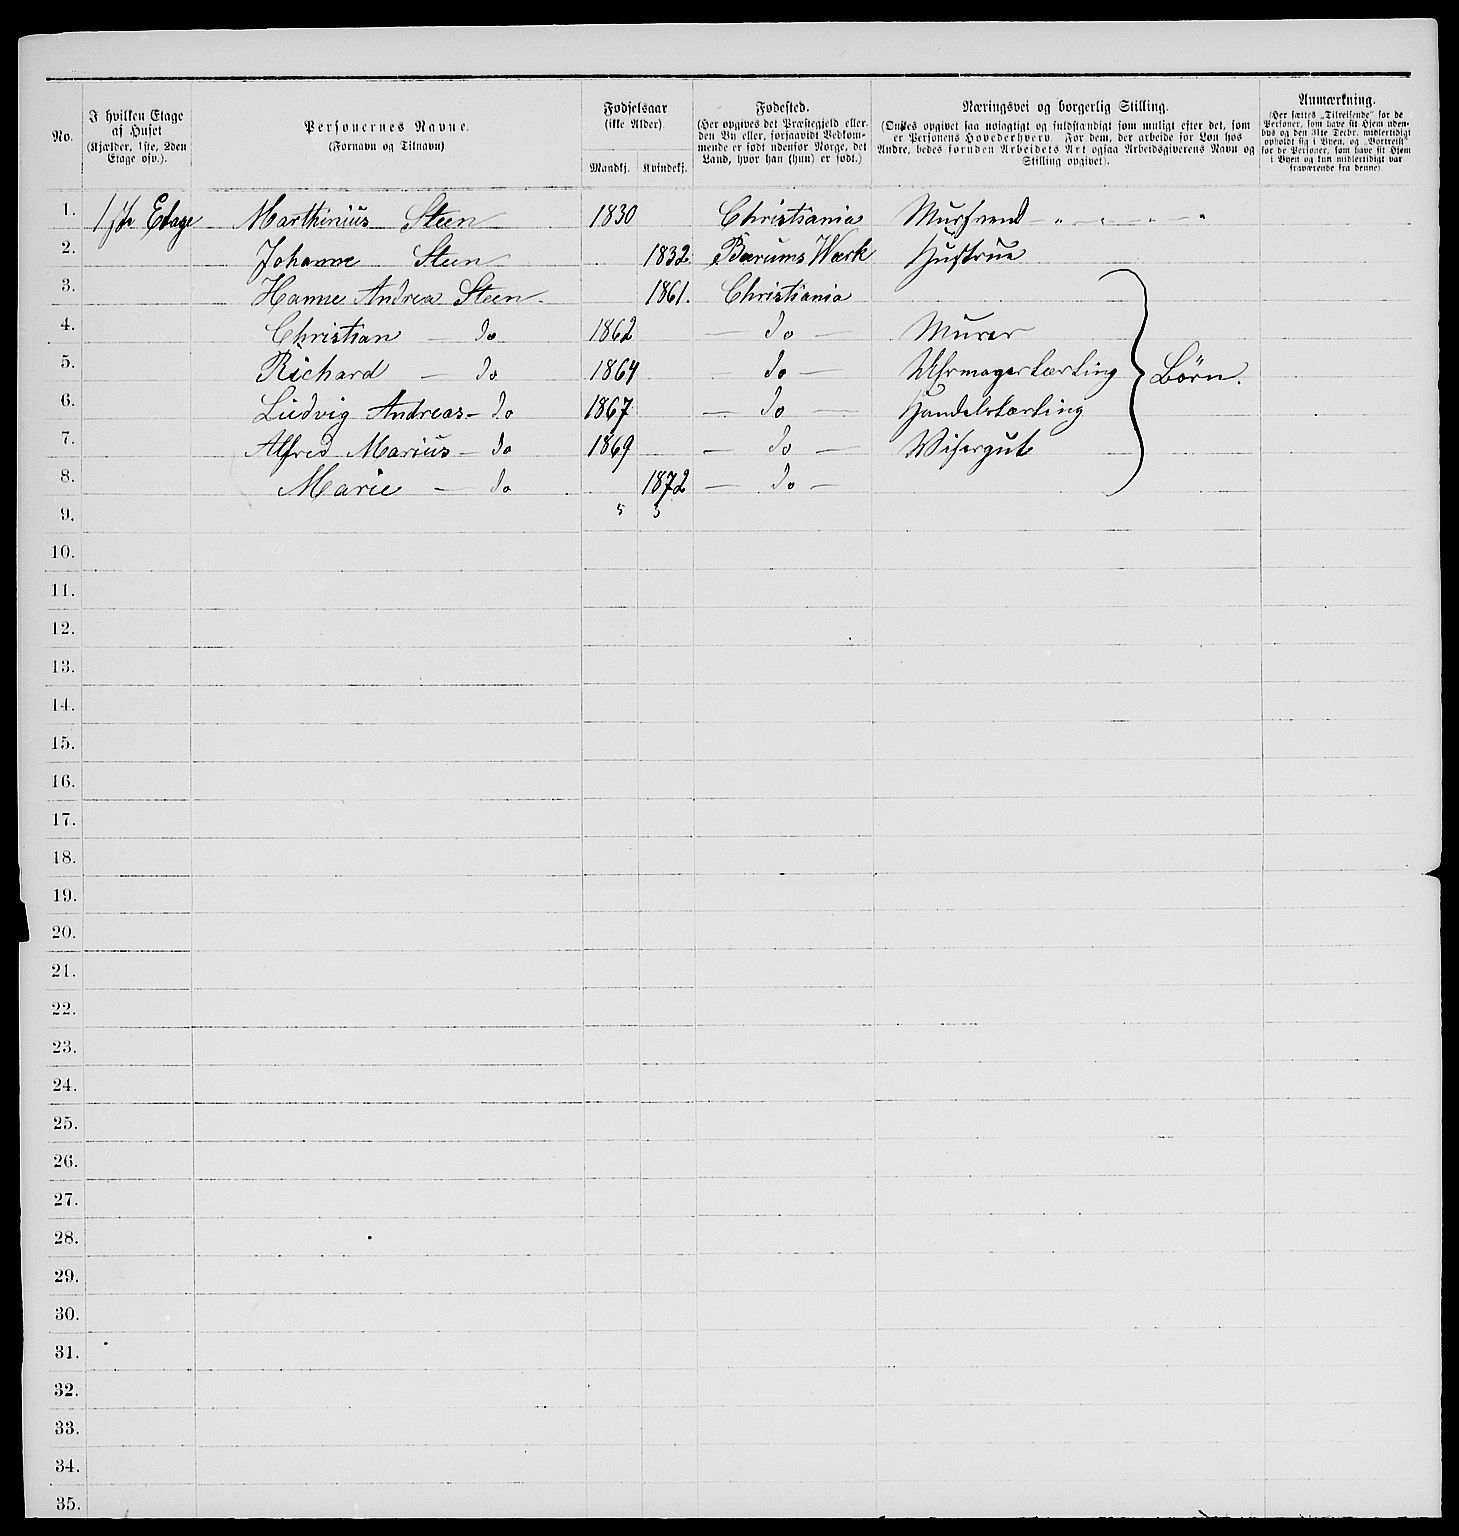 No.
I hvilken Etage
af Huset
(Kjælder, 1ste, 2den
Etage osv.).
Personernes Navne.
(Fornavn og Tilnavn)
Fødselsaar
(ikke Alder).
Mandkj. Kvindekj.
Fødested.
(Her opgives det Præstegjeld eller
den By eller, forsaavidt Vedkom-
mende er født udenfor Norge, det
Land, hvor han (hun) er født.)
Næringsvei og borgerlig Stilling.
(Ønskes opgivet saa nøiagtigt og fuldstændigt som muligt efter det, som
er Personens Hovederhverv. For dem, der arbeide for Løn hos
Andre, bedes foruden Arbeidets Art ogsaa Arbeidsgiverens Navn og
Stilling opgivet).
Anmærkning.
(Her sættes „Tilreisende" for de
Personer, som have sit Hjem uden-
bys og den 31te Decbr. midlertidigt
opholdt sig i Byen, og „Bortreist"
for de Personer, som have sit Hjem
i Byen og kun midlertidigt var
fraværende fra denne).
1. 1ste Etage Marthinius Steen 1830 Christiania Mursvend
2. Johanne Steen 1832 Bærums Værk Hustrue
3. Hanne Andrea Steen. 1861. Christiania
4. Christian — do 1862 — do — Murer
5. Richard — do 1864 do — Uhrmagerlærling Børn.
6. Ludvig Andreas — do 1867 — do — Handelslærling
7. Alfred Marius — do 1869 — do — Visergut
8. Marie — do 1872 — do —
9. 5 3
10.
11.
12.
13.
14.
15.
16.
17.
18.
19.
20.
21.
22.
23.
24.
25.
26.
27.
28.
29.
30.
31.
32.
33.
34.
35.